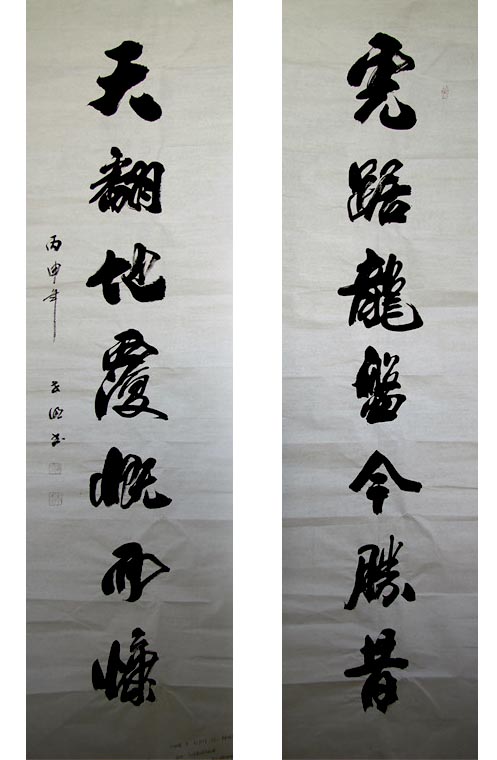 虎踞龍盤今勝昔
天翻地覆慨而慷
丙申年
书